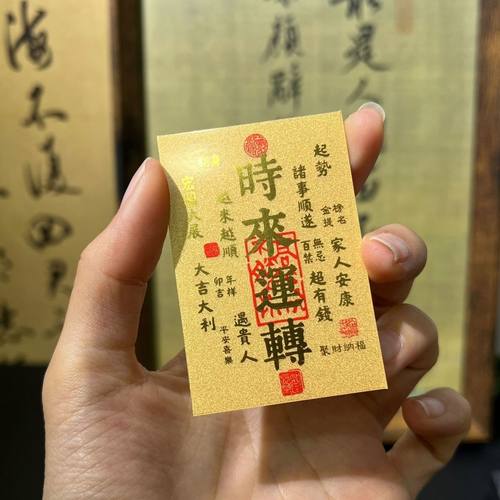 最是人
顏辭
海不復回
起勢
榜名
金提
家人安康
諸事順遂
無忌
百禁
超有錢
聚財納福
時來運轉
越來越順
年祥
卯吉
遇貴人
平安喜樂
宏圖大展
大吉大利